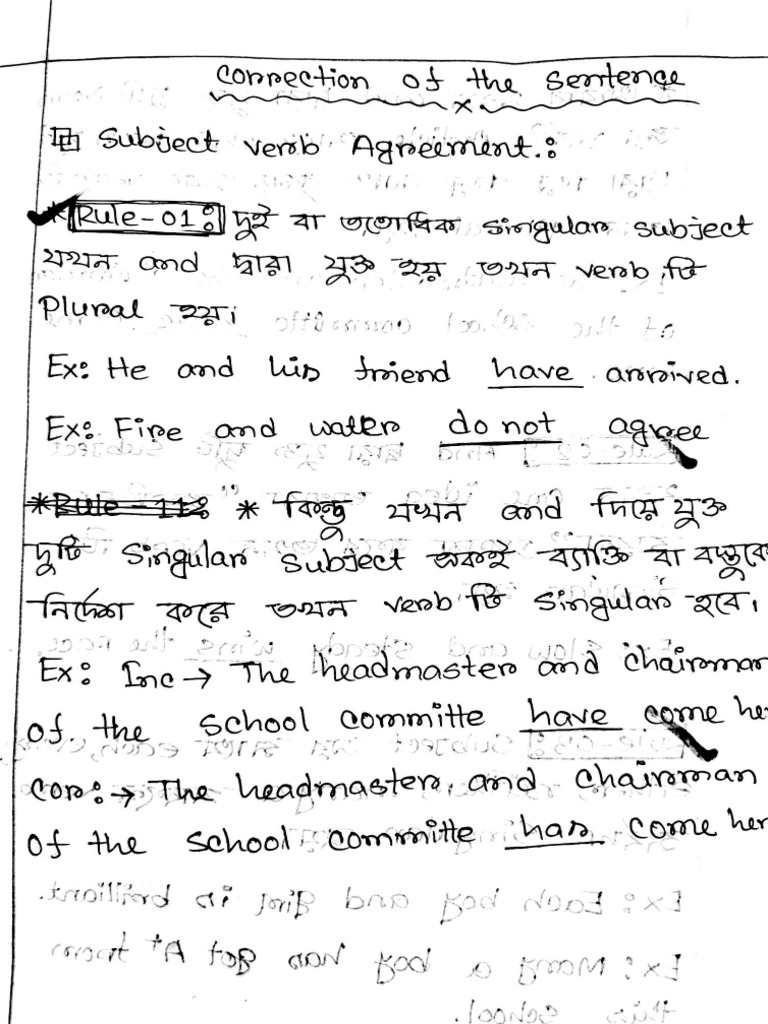 Correction of the Sentence
Subject verb Agreement.:
* Rule-01: দুই বা ততোধিক singular subject
যখন and দ্বারা যুক্ত হয় তখন verb টি
Plural হয়।
Ex: He and his friend have arrived.
Ex: Fire and water do not agree
* Rule-11: * কিন্তু যখন and দিয়ে যুক্ত
দুটি singular subject একই ব্যাক্তি বা বস্তুকে
নির্দেশ করে তখন verb টি singular হবে।
Ex: Inc → The headmaster and chairman
of the school committe have come her
Cor: → The headmaster and chairman
of the school committe has come her